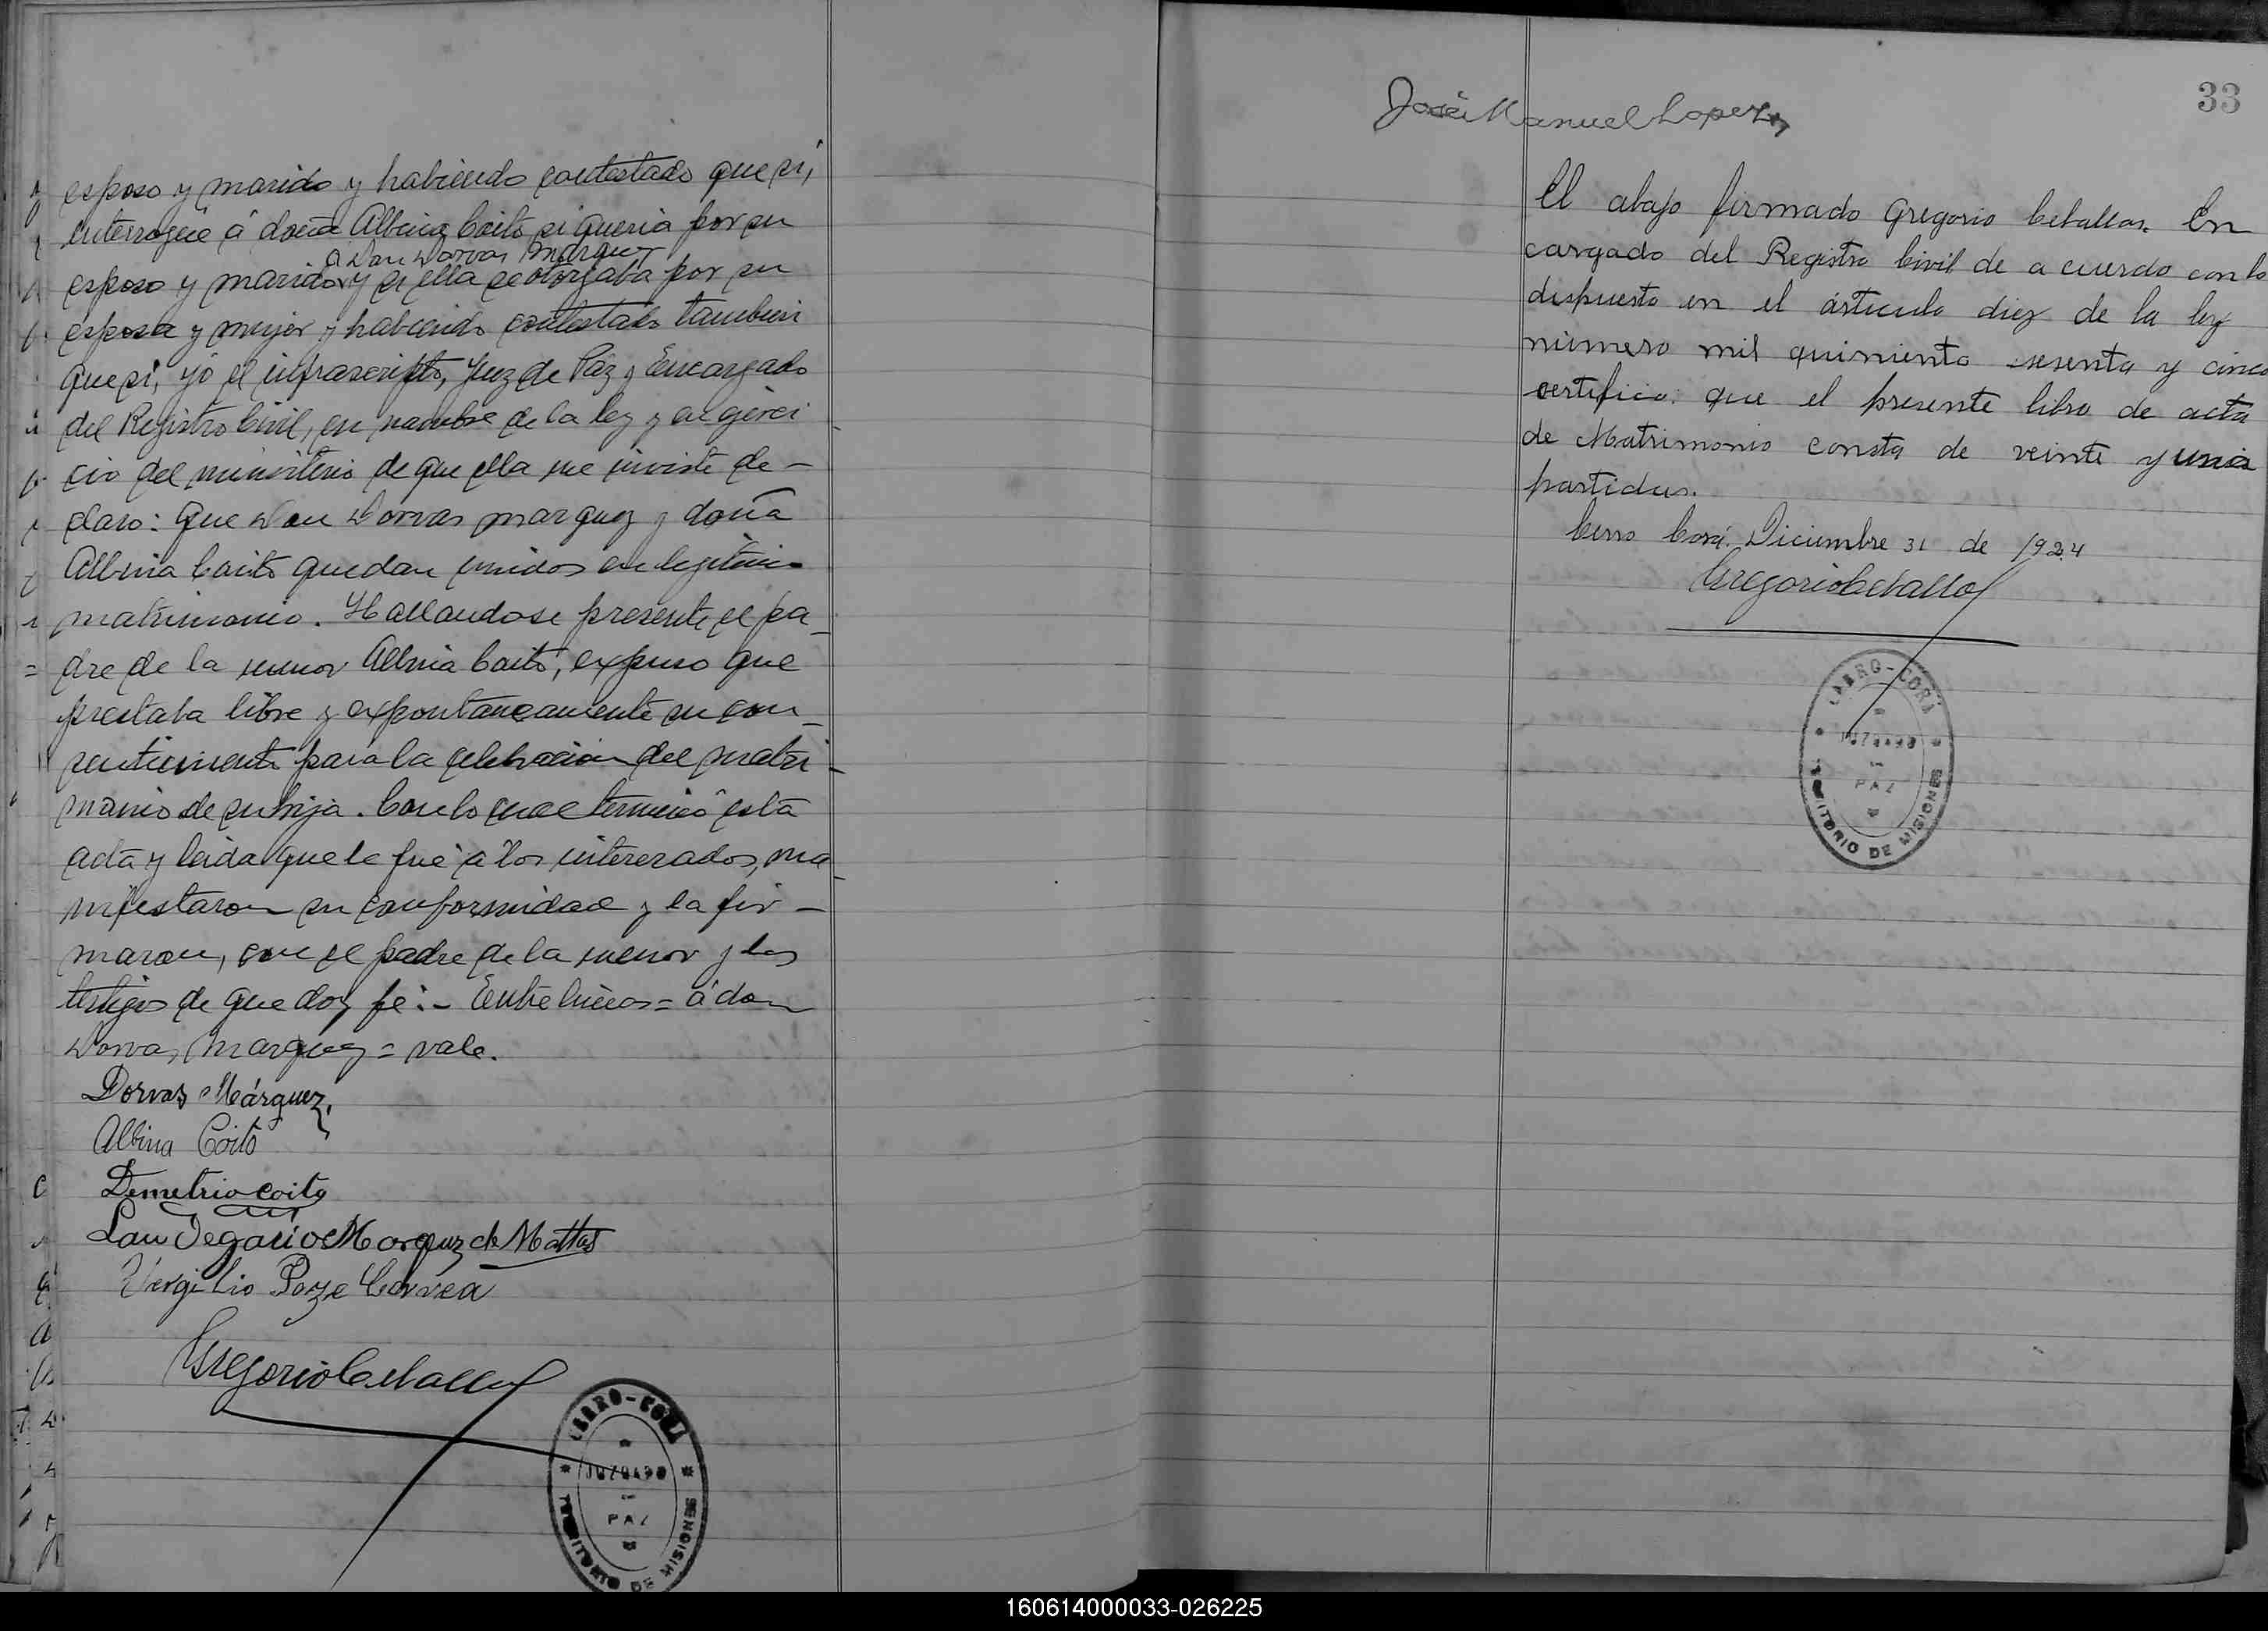 esposo y marido y habiendo contestado que si,
interrogué á doña Albina Coito si queria por su
a Don Dorvas Marquez
esposo y marido y si ella se otorgaba por su
esposa y mujer y habiendo contestado tambien
que si, yó el infrascripto, Juez de Paz y Encargado
del Registro Civil, en nombre de la ley y en gerci
cio del ministerio de que ella me inviste de-
claro: que Don Dorvas Marquez y doña
Albina Coito quedan unidos en legitimo
matrimonio. Hallandose presente el pa-
dre de la menor Albina Coito, expuso que
prestaba libre y expontaneamente su con-
sentimiento para la celebracion del matri-
monio de su hija. Con lo cual terminó esta
acta y leida que le fué á los interezados, ma-
nifestaron su conformidad y la fir-
maron, con el padre de la menor y los
testigos de que doy fé:- Entre lineas= á don
Dorvas Marquez= vale.
Dorvas Márquez,
Albina Coito
Demetrio Coito
Lau Degario Marquz de Mattos
Virgilio Correa
Gregorio Ceballos
CERRO-CORÁ
JUZGADO
DE
PAZ
TERRITORIO DE MISIONES
33
José Manuel Lopez
El abajo firmado Gregorio Ceballos. En
cargado del Registro Civil de a cuerdo con lo
dispuesto en el árticulo diez de la ley
número mil quiniento sesenta y cinco
certifico: que el presente libro de acta
de Matrimonio consta de veinte y una
partidas.
Cerro Corá. Diciembre 31 de 1924
Gregorio Ceballos
CERRO-CORÁ
JUZGADO
DE
PAZ
TERRITORIO DE MISIONES
160614000033-026225